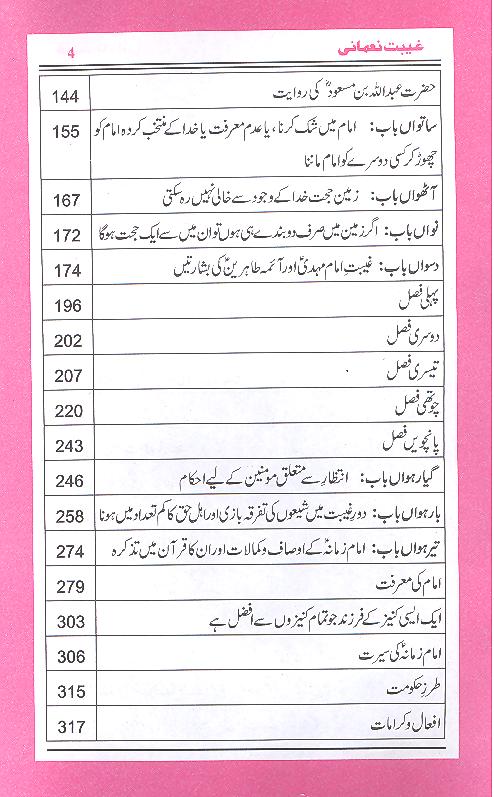 غیبت نعمانی 4
حضرت عبداللہ بن مسعودؓ کی روایت 144
ساتواں باب: امام میں شک کرنا، یا عدم معرفت یا خدا کے منتخب کردہ امام کو 155
چھوڑ کر کسی دوسرے کو امام ماننا
آٹھواں باب: زمین حجت خدا کے وجود سے خالی نہیں رہ سکتی 167
نواں باب: اگر زمین میں صرف دو بندے ہی ہوں تو ان میں سے ایک حجت ہوگا 172
دسواں باب: غیبتِ امام مہدیؑ اور آئمہ طاہرینؑ کی بشارتیں 174
پہلی فصل 196
دوسری فصل 202
تیسری فصل 207
چوتھی فصل 220
پانچویں فصل 243
گیارہواں باب: انتظار سے متعلق مومنین کے لیے احکام 246
بارہواں باب: دورِ غیبت میں شیعوں کی تفرقہ بازی اور اہل حق کا کم تعداد میں ہونا 258
تیرہواں باب: امام زمانہؑ کے اوصاف و کمالات اور ان کا قرآن میں تذکرہ 274
امام کی معرفت 279
ایک ایسی کنیز کے فرزند جو تمام کنیزوں سے افضل ہے 303
امام زمانہؑ کی سیرت 306
طرزِ حکومت 315
افعال و کرامات 317